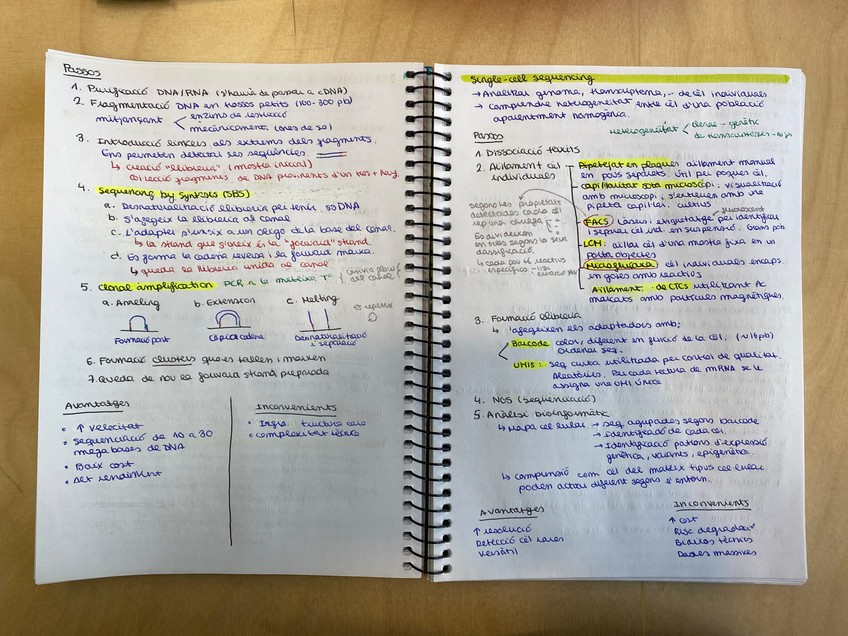 Passos
1. Purificació DNA/RNA (s'haurà de passar a cDNA)
2. Fragmentació DNA en trossos petits (100-300 pb)
mitjançant
enzims de restricció
mecànicament (ones de so)
3. Introducció linkers als extrems dels fragments.
Ens permeten detectar les seqüències.
↳ creació "llibreria" (mostra inicial)
col·lecció fragments de DNA provinents d'un
4. Sequencing by Syntesis (SBS)
a. Desnaturalització llibreria per tenir ssDNA
b. s'afegeix la llibreria al canal
c. L'adaptador s'uneix a un oligo de la base del canal.
↳ la strand que s'uneix és la "forward" strand
d. Es forma la cadena reverse i la forward marxa.
↳ queda la llibreria unida al canal
5. Clonal amplification PCR a la mateixa Tª
a. Aneling b. Extension c. Melting
es repeteix
Formació pont Còpia cadena Desnaturalització
i separació
6. Formació clusters que es tallen i marxen
7. Queda de nou la forward strand preparada
Avantatges
• ↑ Velocitat
• Sequenciació de 10 a 30
mega bases de DNA
• Baix cost
• Alt rendiment
Inconvenients
• Infraestructura cara
• Complexitat tècnica
Single-cell sequencing
→ Analitzar genoma, transcriptoma, ... de cèl individuals
→ comprendre heterogeneitat entre cèl d'una població
aparentment homogènia.
Heterogeneïtat
Passos
1. Dissociació teixits
2. Aïllament cèl
individuals
Pipetejat en plaques aïllament manual
en pous separats. Útil per poques cèl.
capil·laritat sota microscopi: visualització
amb microscopi i s'extreuen amb una
pipeta capil·lar. cultius
fluorescent
FACS làsers i etiquetatge per identificar
i separar cèl ind. en suspensió.
LCM: aïllar cèl d'una mostra fixa en un
porta objectes
Microfluídica cèl individuals encaps.
en gotes amb reactius
Aïllament de CTCs utilitzant Ac
marcats amb partícules magnètiques.
segons les propietats
detectades cada cèl
rep una càrrega
Es divideixen
en tubs segons la seva
classificació.
3. Formació llibreria
↳ s'afegeixen els adaptadors amb:
Barcode color, diferent en funció de la cèl. (~16pb)
Ordenar seq.
UMIs: seq curta utilitzada per control de qualitat.
Aleatòries. Per cada lectura de mRNA se li
assigna una UMI única
4. NGS (Sequenciació)
5. Anàlisi bioinformàtic
↳ Mapa cel·lular → seq agrupades segons barcode
→ Identificació de cada cèl.
→ Identificació patrons d'expressió
genètica, variants, epigenètica.
↳ comprensió com cèl del mateix tipus cel·lular
poden actuar diferent segons l'entorn.
Avantatges
↑ resolució
Detecció cèl rares
Versàtil
Inconvenients
↑ cost
Risc degradació
Biaixos tècnics
Dades massives